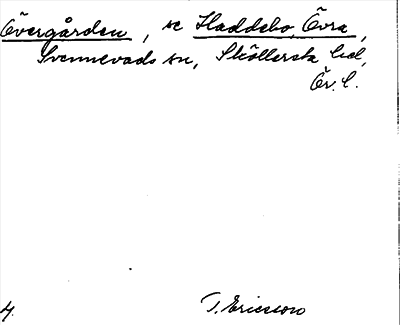 Övergården, se Haddebo, Övra,
Svennevads sn, Sköllersta hd,
Ör. l.
4. T. Ericsson